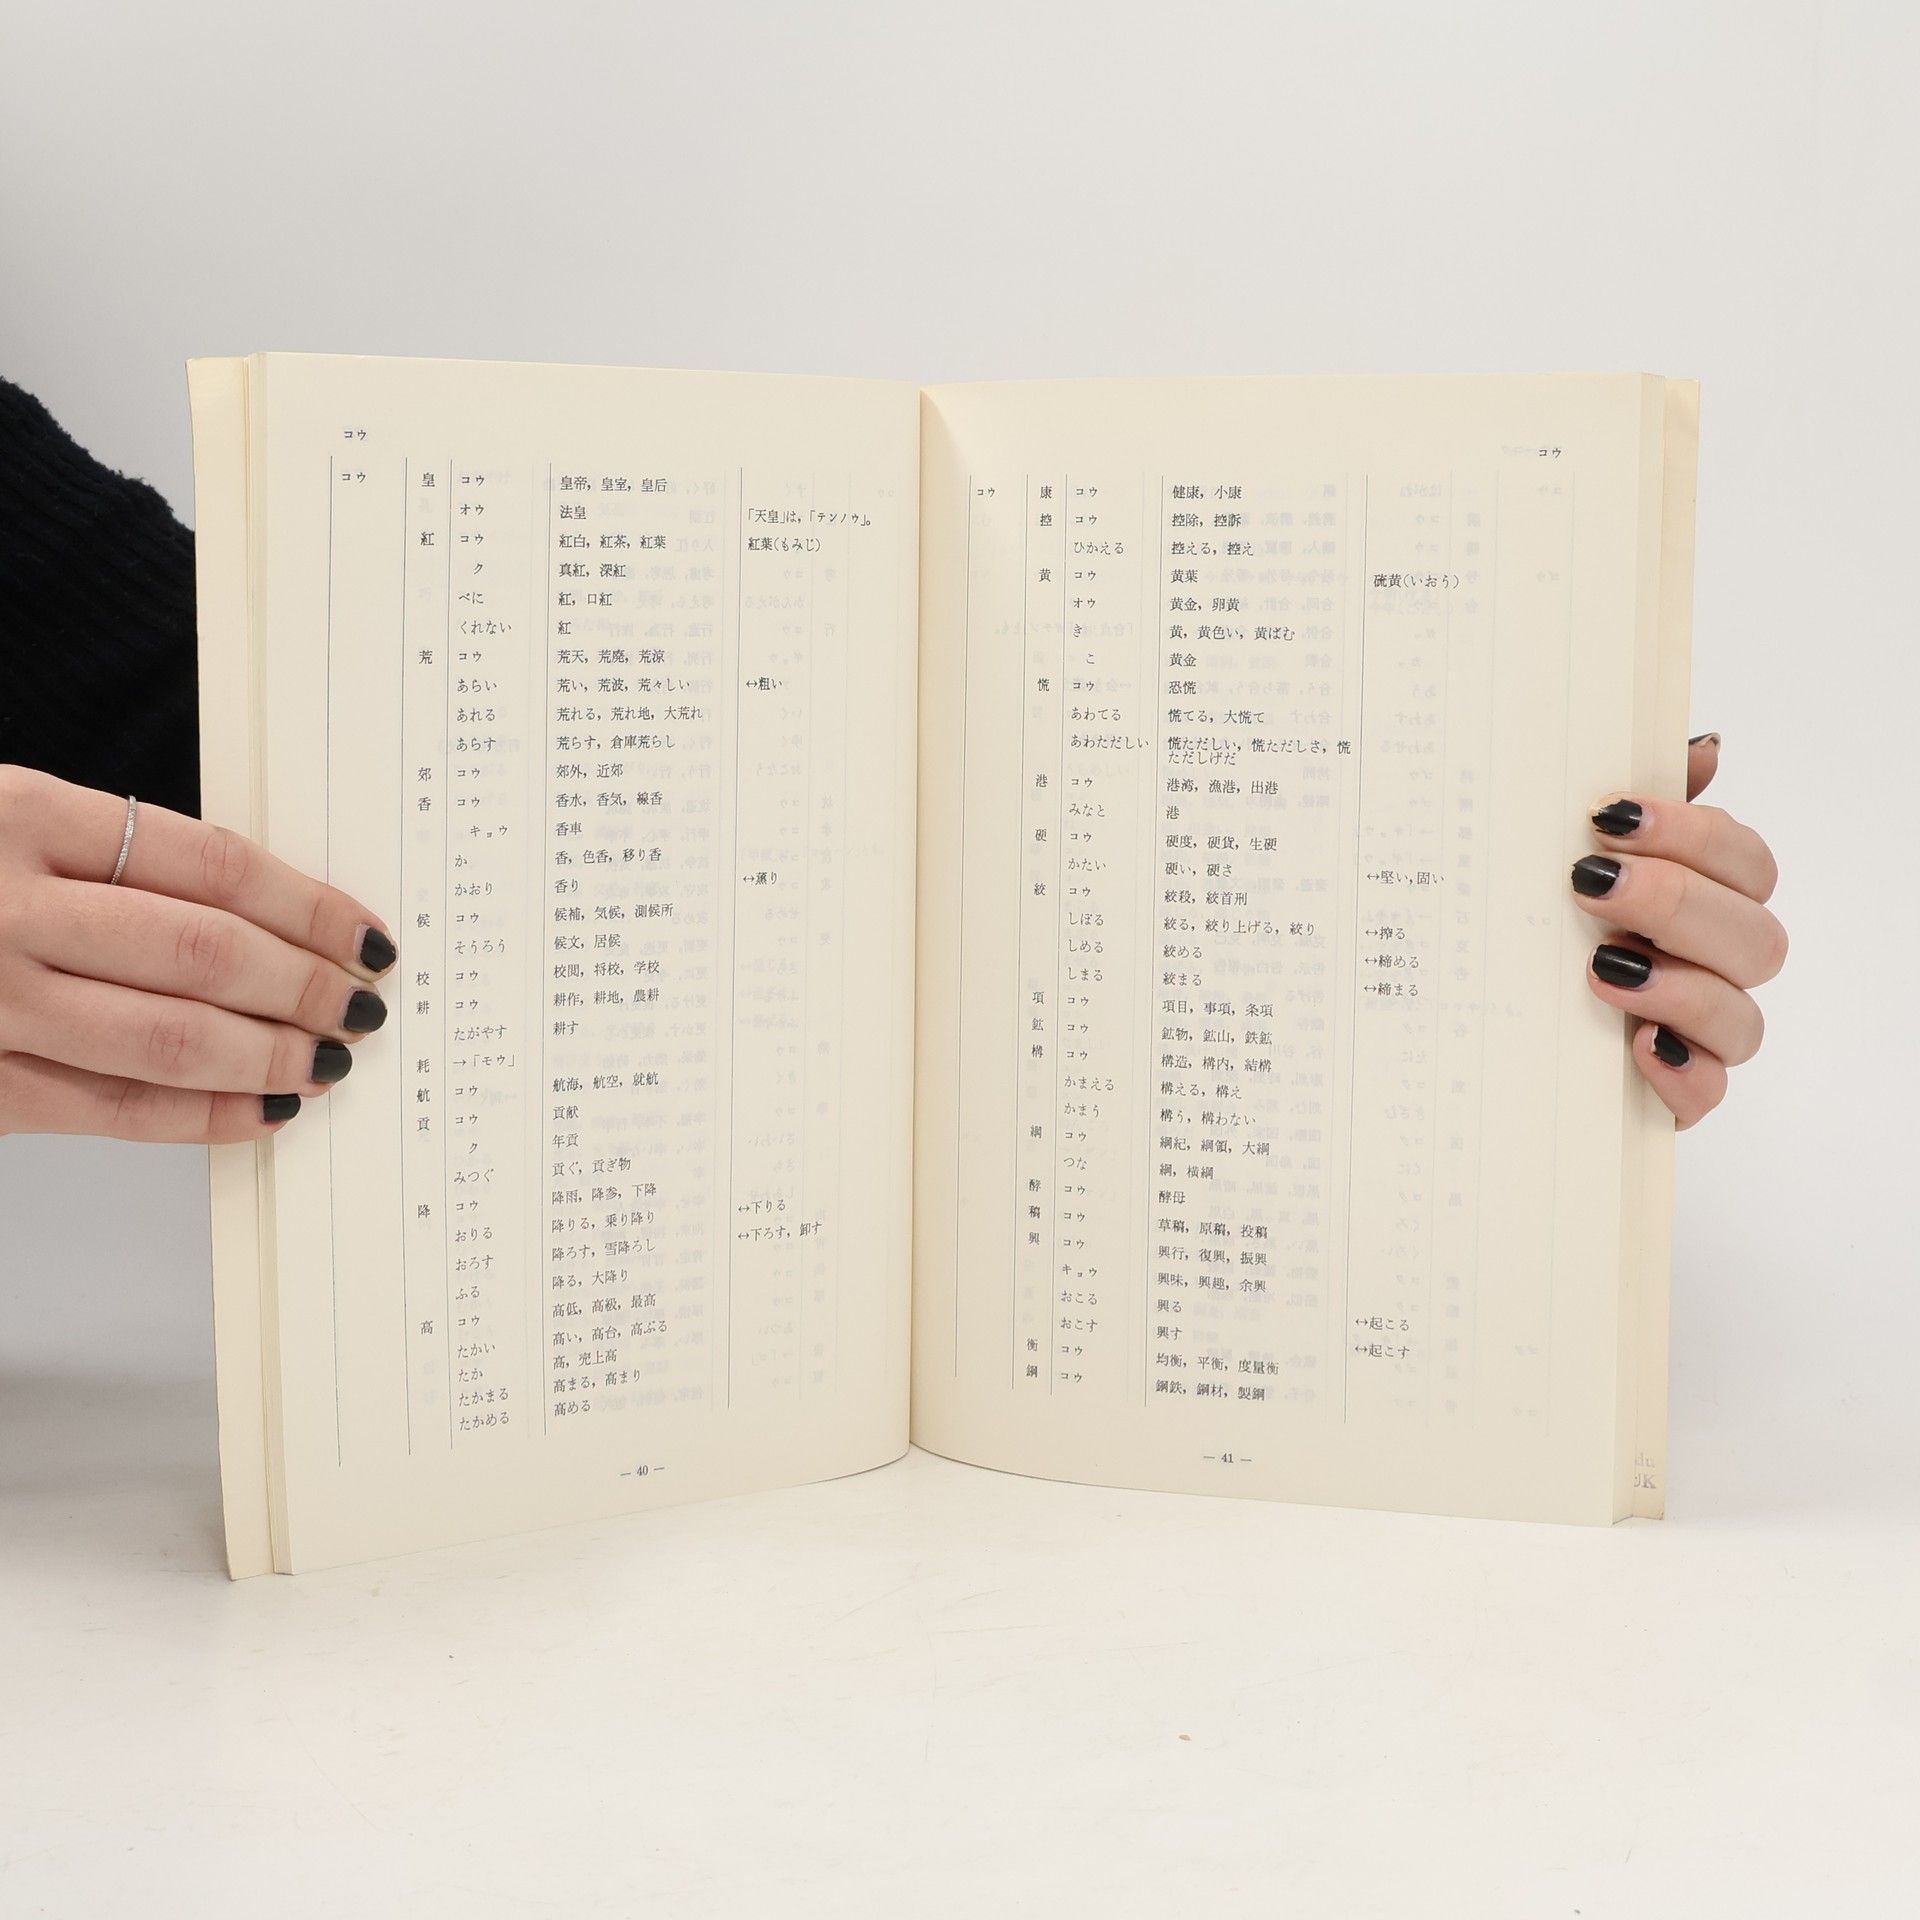 コウ
コウ 皇 コウ 皇帝，皇室，皇后
オウ 法皇 「天皇」は，「テンノウ」。
紅 コウ 紅白，紅茶，紅葉 紅葉(もみじ)
ク 真紅，深紅
べに 紅，口紅
くれない 紅
荒 コウ 荒天，荒廃，荒涼
あらい 荒い，荒波，荒々しい ↔粗い
あれる 荒れる，荒れ地，大荒れ
あらす 荒らす，倉庫荒らし
郊 コウ 郊外，近郊
香 コウ 香水，香気，線香
キョウ 香車
か 香，色香，移り香
かおり 香り ↔薫り
候 コウ 候補，気候，測候所
そうろう 候文，居候
校 コウ 校閲，将校，学校
耕 コウ 耕作，耕地，農耕
たがやす 耕す
耗 →「モウ」
航 コウ 航海，航空，就航
貢 コウ 貢献
ク 年貢
みつぐ 貢ぐ，貢ぎ物
降 コウ 降雨，降参，下降
おりる 降りる，乗り降り ↔下りる
おろす 降ろす，雪降ろし ↔下ろす，卸す
ふる 降る，大降り
高 コウ 高低，高級，最高
たかい 高い，高台，高ぶる
たか 高，売上高
たかまる 高まる，高まり
たかめる 高める
— 40 —
コウ
コウ 康 コウ 健康，小康
控 コウ 控除，控訴
ひかえる 控える，控え
黄 コウ 黄葉 硫黄(いおう)
オウ 黄金，卵黄
き 黄，黄色い，黄ばむ
こ 黄金
慌 コウ 恐慌
あわてる 慌てる，大慌て
あわただしい 慌ただしい，慌ただしさ，慌
ただしげだ
港 コウ 港湾，漁港，出港
みなと 港
硬 コウ 硬度，硬貨，生硬
かたい 硬い，硬さ ↔堅い，固い
絞 コウ 絞殺，絞首刑
しぼる 絞る，絞り上げる，絞り ↔搾る
しめる 絞める ↔締める
しまる 絞まる ↔締まる
項 コウ 項目，事項，条項
鉱 コウ 鉱物，鉱山，鉄鉱
構 コウ 構造，構内，結構
かまえる 構える，構え
かまう 構う，構わない
綱 コウ 綱紀，綱領，大綱
つな 綱，横綱
酵 コウ 酵母
稿 コウ 草稿，原稿，投稿
興 コウ 興行，復興，振興
キョウ 興味，興趣，余興
おこる 興る ↔起こる
おこす 興す ↔起こす
衡 コウ 均衡，平衡，度量衡
鋼 コウ 鋼鉄，鋼材，製鋼
— 41 —